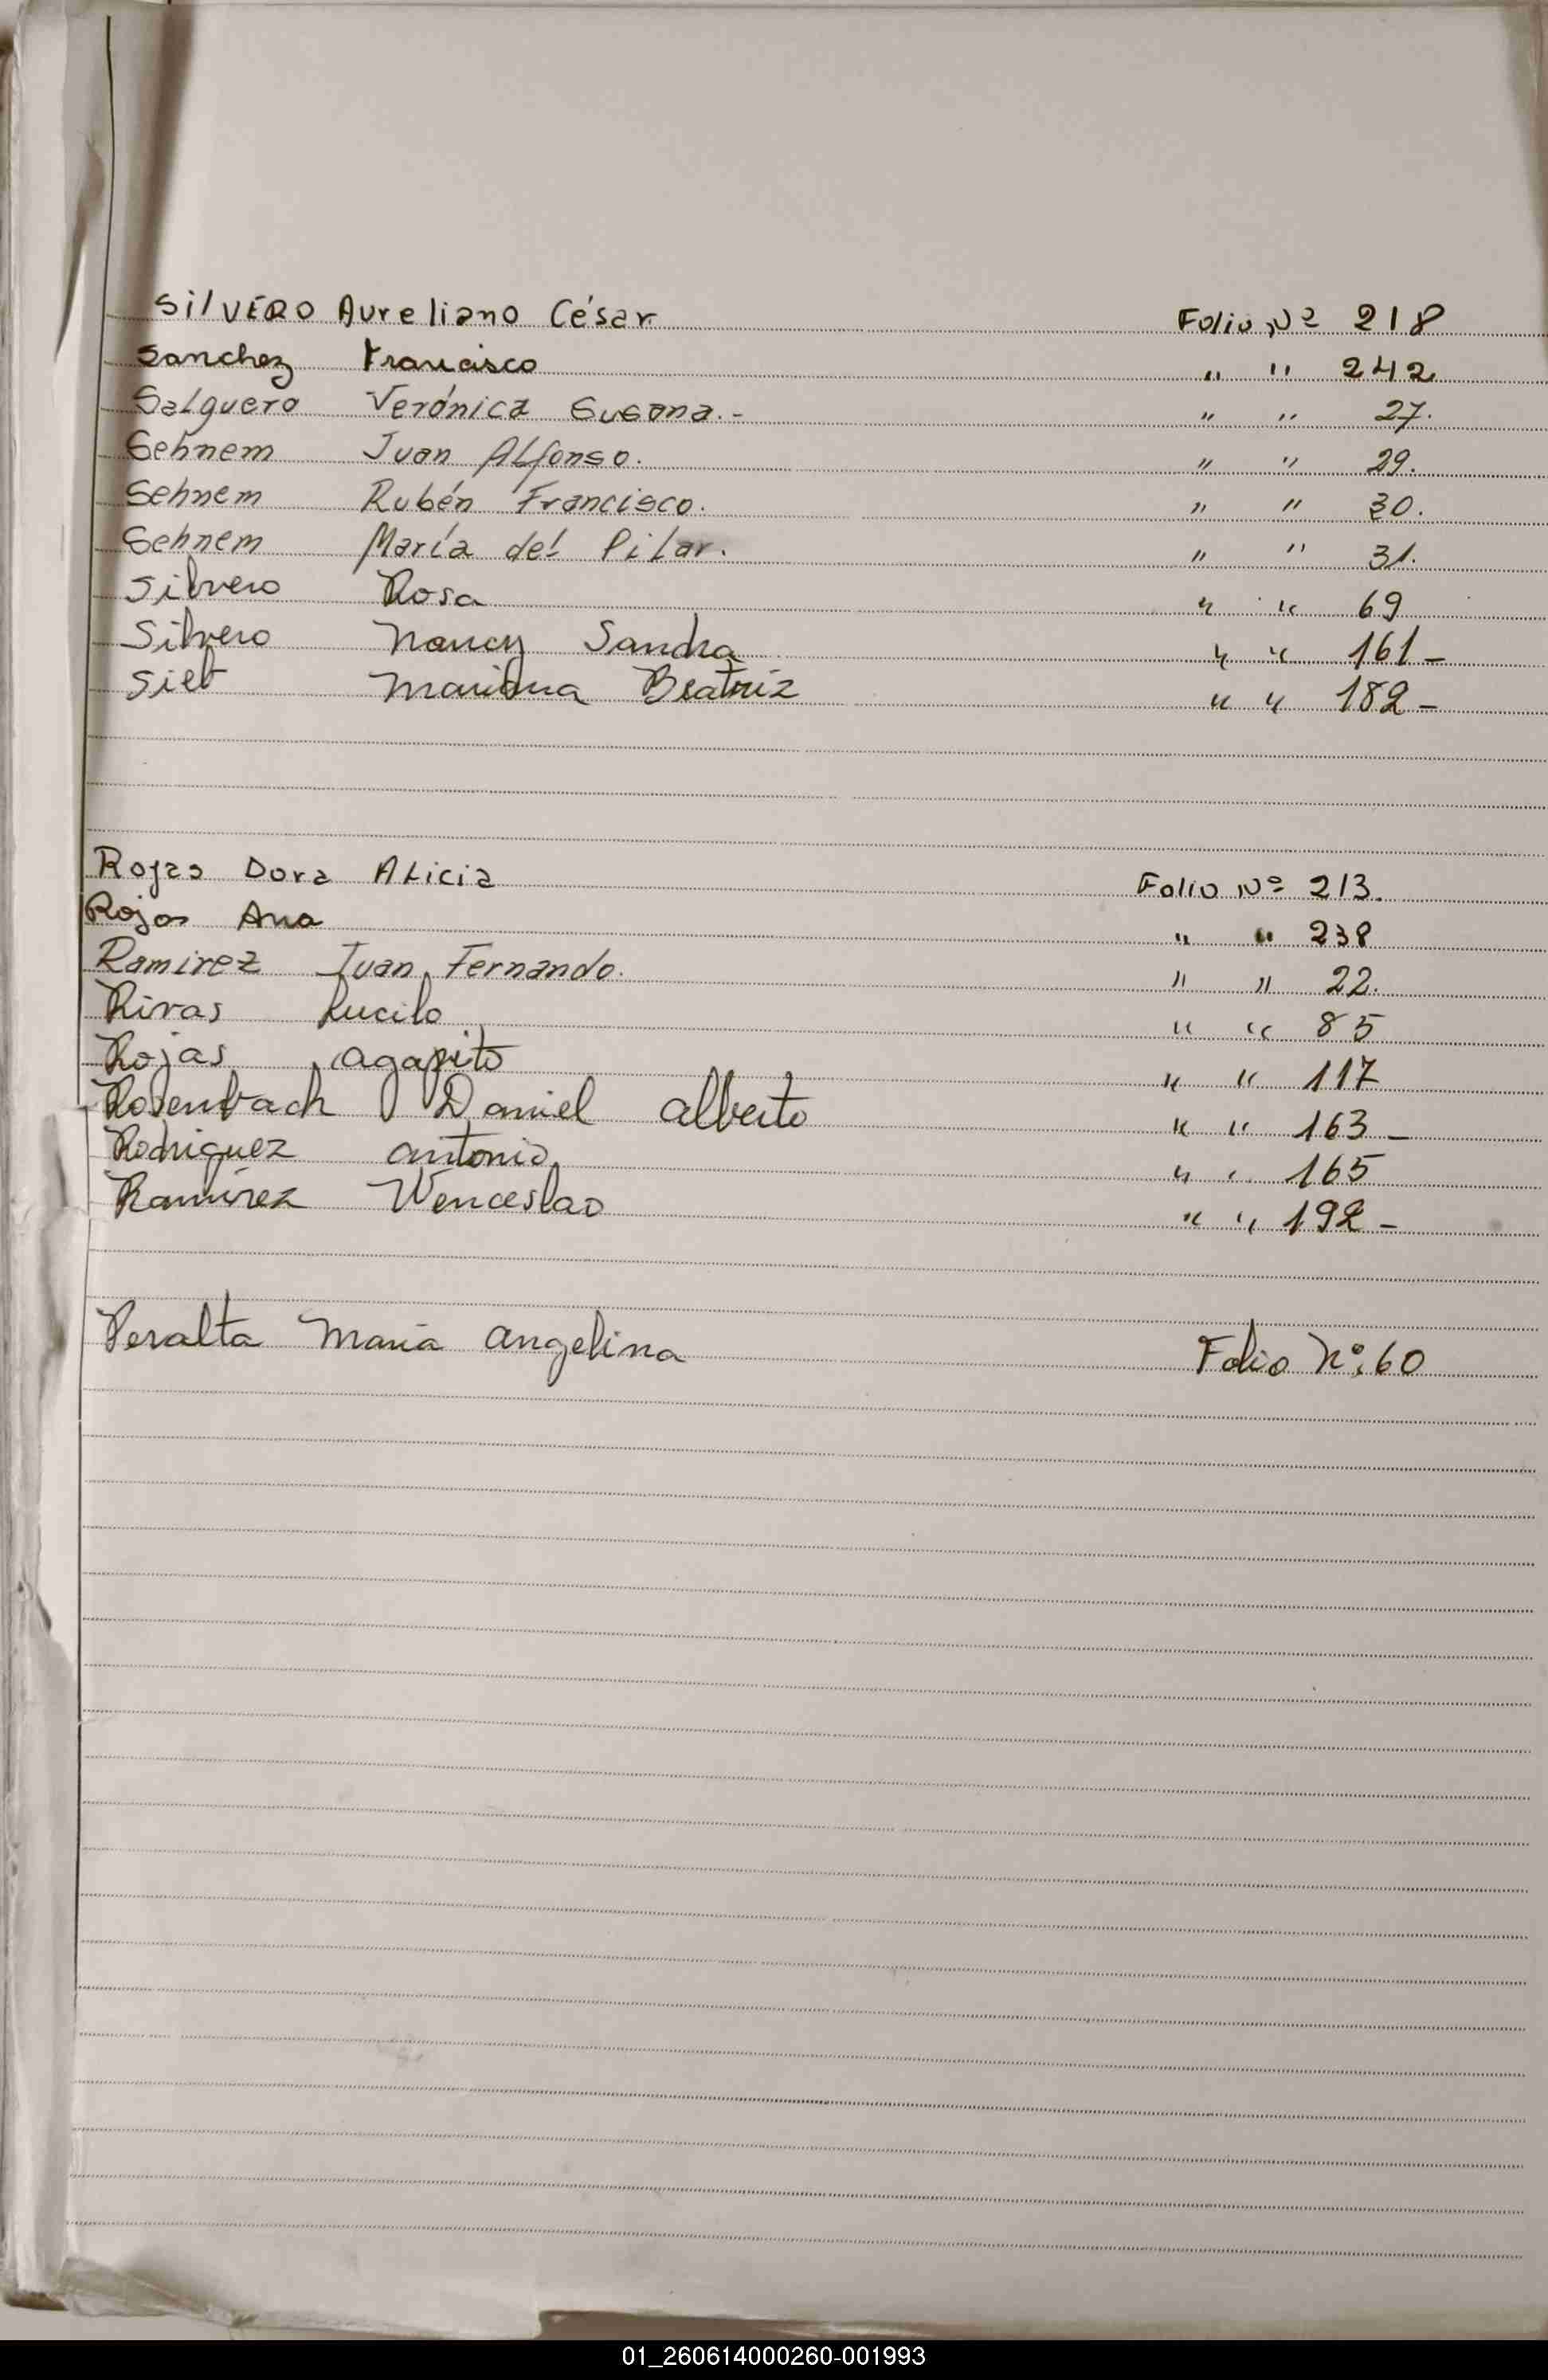 SilVERO Aureliano César Folio Nº 218
Sanchez Francisco " " 242
Salguero Verónica Susana.- " " 27.
Sehnem Juan Alfonso. " " 29.
Sehnem Rubén Francisco. " " 30.
Sehnem María del Pilar. " " 31.
Silvero Rosa " " 69
Silvero Nancy Sandra " " 161-
Sieb Mariana Beatriz " " 182-
Rojas Dora Alicia Folio Nº 213.
Rojas Ana " " 238
Ramirez Juan Fernando. " " 22.
Rivas Lucilo " " 85
Rojas Agapito " " 117
Rosenbach Daniel Alberto " " 163-
Rodriguez Antonio " " 165
Ramirez Wenceslao " " 192-
Peralta Maria Angelina Folio Nº: 60
01_260614000260-001993